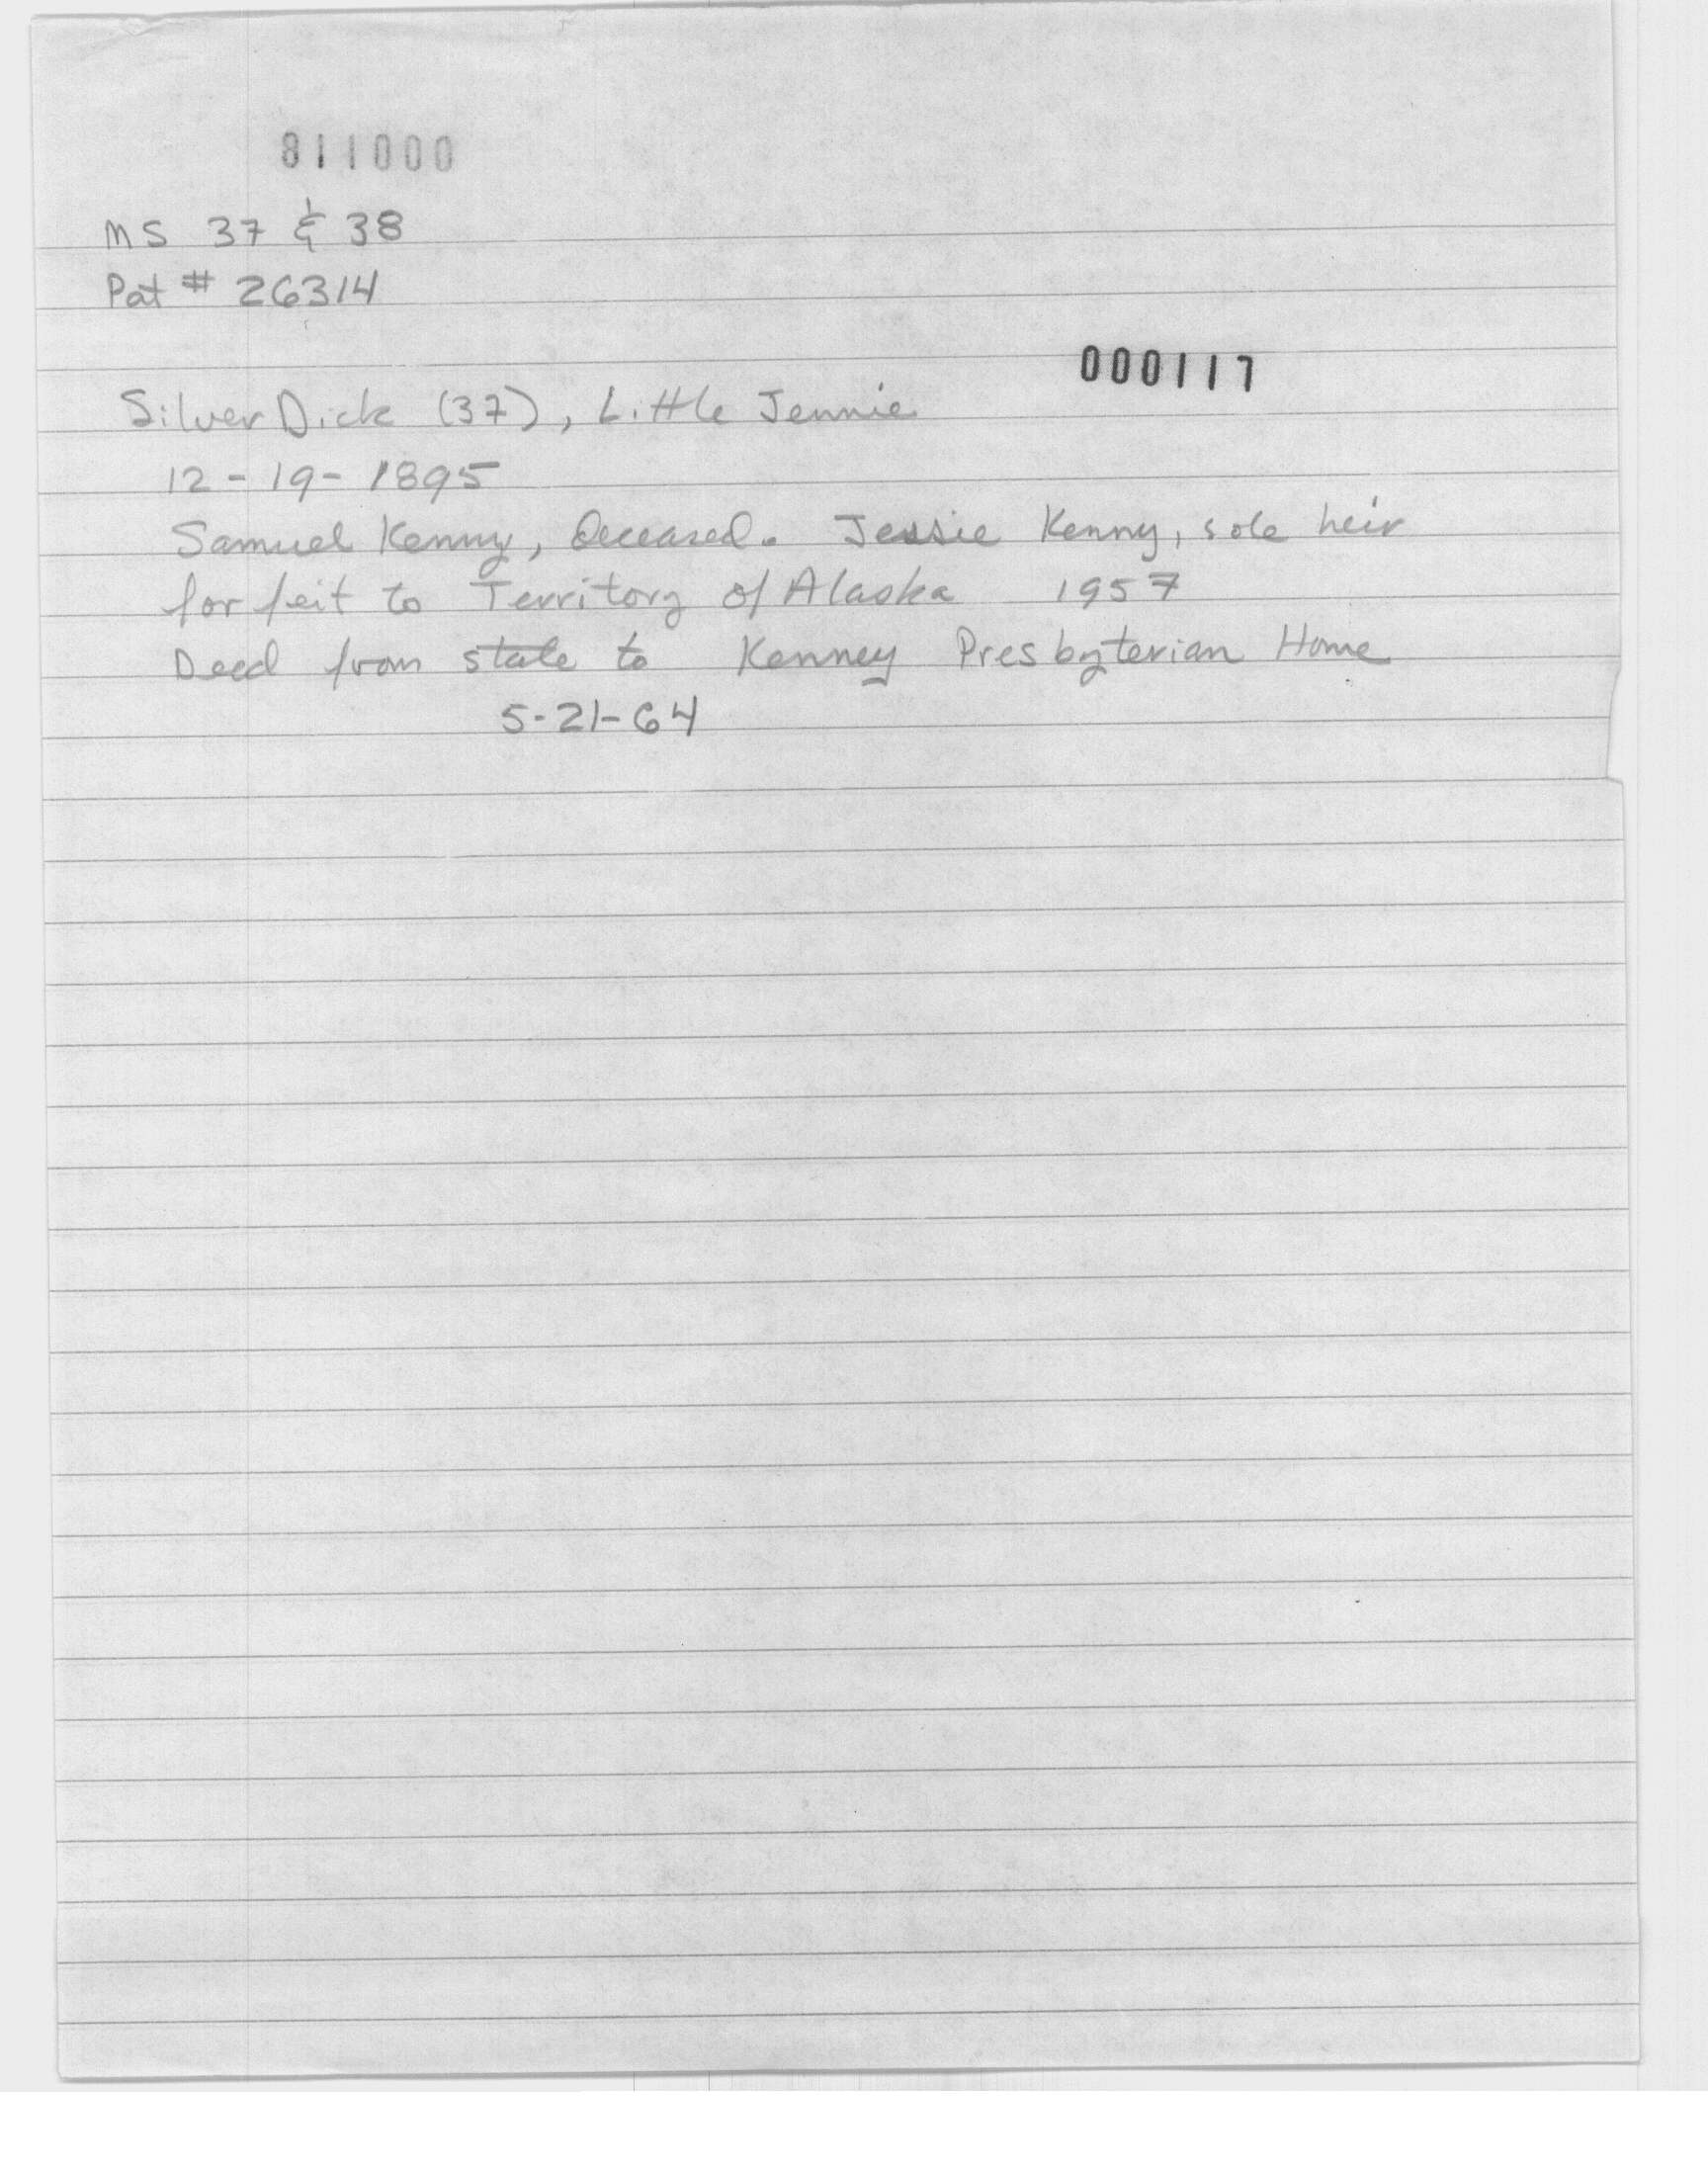 811000
MS 37 & 38
Pat # 26314
000117
Silver Dick (37), Little Jennie
12-19-1895
Samuel Kenny, Deceased. Jessie Kenny, sole heir
forfeit to Territory of Alaska 1957
Deed from state to Kenney Presbyterian Home
5-21-64